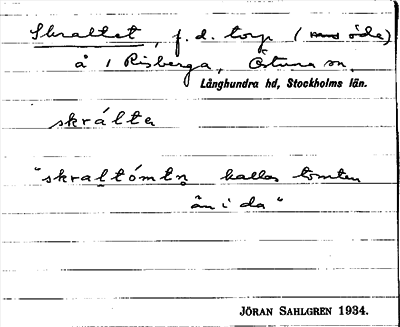 Skraltet, f. d. torp (nu öde)
å 1 Risberga, Östuna sn.
Långhundra hd, Stockholms län.
skrálta
"skraltómtn kallas tomten
än i da"
JÖRAN SAHLGREN 1934.